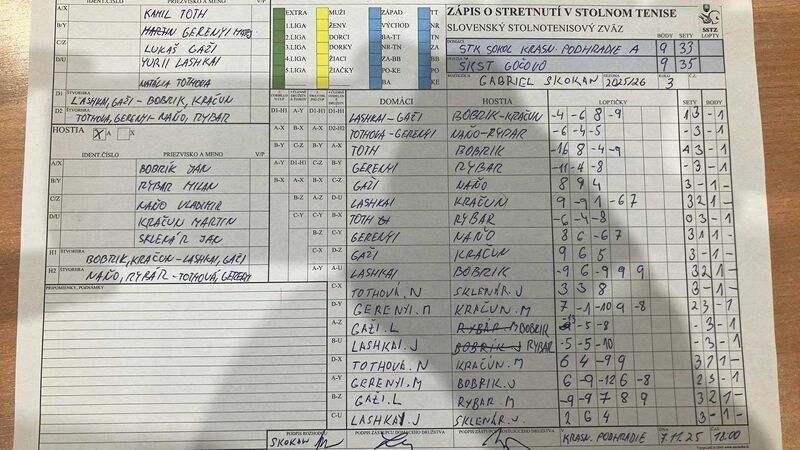 IDENT.ČÍSLO PRIEZVISKO A MENO V/P
A/X KAMIL TÓTH
B/Y MARTIN GERENYI
C/Z LUKÁŠ GAŽI
D/U YURII LASHKAI
NATÁLIA TÓTHOVÁ
D1 ŠTVORHRA LASHKAI, GAŽI - BOBRIK, KRAČÚN
D2 TÓTHOVÁ, GERENYI - NAŇO, RYBÁR
HOSTIA A X
IDENT.ČÍSLO PRIEZVISKO A MENO V/P
A/X BOBRIK JÁN
B/Y RYBÁR MILAN
C/Z NAŇO VLADIMÍR
D/U KRAČÚN MARTIN
SKLENÁR JÁN
H1 ŠTVORHRA BOBRIK, KRAČÚN - LASHKAI, GAŽI
H2 ŠTVORHRA NAŇO, RYBÁR - TÓTHOVÁ, GERENYI
PRIPOMIENKY, POZNÁMKY
EXTRA MUŽI ZÁPAD TT
1.LIGA ŽENY VÝCHOD NR
2.LIGA DORCI BA-TT TN
3.LIGA DORKY NR-TN ZA
4.LIGA ŽIACI ZA-BB BB
5.LIGA ŽIAČKY PO-KE PO
BA KE
ZÁPIS O STRETNUTÍ V STOLNOM TENISE
SLOVENSKÝ STOLNOTENISOVÝ ZVÄZ
SSTZ
BODY SETY LOPTY
STK SOKOL KRASN. PODHRADIE A 9 33
ŠKST GOČOVO 9 35
ROZHODCA GABRIEL SKOKAN SEZÓNA 2025/26 KOLO 3
DOMÁCI HOSTIA LOPTIČKY SETY BODY
D1-H1 LASHKAI-GAŽI BOBRIK-KRAČÚN -4 -6 8 -9 1 3 - 1
D2-H2 TÓTHOVÁ-GERENYI NAŇO-RYBÁR -6 -4 -5 - 3 - 1
TÓTH BOBRIK -16 8 -4 -9 1 3 - 1
GERENYI RYBÁR -11 -4 -8 - 3 - 1
GAŽI NAŇO 8 9 4 3 - 1 -
LASHKAI KRAČÚN 9 -9 1 -6 7 3 2 1 -
TÓTH RYBÁR -6 -4 -8 0 3 - 1
GERENYI NAŇO 8 6 -6 7 3 1 1 -
GAŽI KRAČÚN 9 6 5 3 - 1 -
A-U LASHKAI BOBRIK -9 6 -9 9 9 3 2 1 -
C-X TÓTHOVÁ.N SKLENÁR.J 3 3 8 3 - 1 -
D-Y GERENYI.M KRAČÚN.M 7 -1 -10 9 -8 2 3 - 1
A-Z GAŽI.L BOBRIK -13 -5 -8 - 3 - 1
B-U LASHKAI.J RYBÁR -5 -5 -10 - 3 - 1
D-X TÓTHOVÁ.N KRAČÚN.M 6 4 -9 9 3 1 1 -
A-Y GERENYI.M BOBRIK.J 6 -9 -12 6 -8 2 3 - 1
B-Z GAŽI.L RYBÁR.M -9 -9 7 8 9 3 2 1 -
C-U LASHKAI.J SKLENÁR.J 2 6 4 3 - 1 -
PODPIS ROZHODCU SKOKAN
PODPIS ZÁSTUPCU DOMÁCEHO DRUŽSTVA
PODPIS ZÁSTUPCU HOSTUJÚCEHO DRUŽSTVA
V KRASN. PODHRADIE DŇA 7.11.25 ČAS 18.00